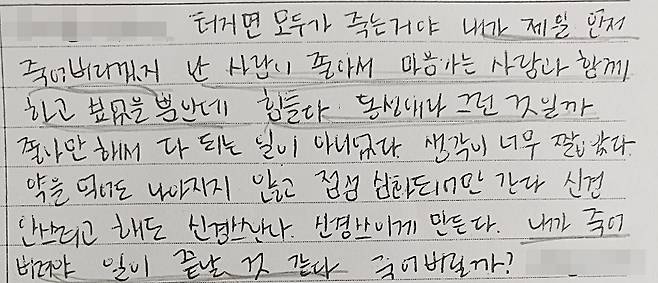 터지면 모두가 죽는거야 내가 제일 먼저
죽어버리겠지 난 사람이 좋아서 마음가는 사람과 함께
하고 싶었을 뿐인데 힘들다. 동성애라 그런 것일까
좋아만 해서 다 되는 일이 아니었다. 생각이 너무 짧았다.
약을 먹어도 나아지지 않고 점점 심해되기만 간다 신경
안쓰려고 해도 신경쓰인다. 신경쓰이게 만든다. 내가 죽어
버려야 일이 끝날 것 같다 죽어버릴까?